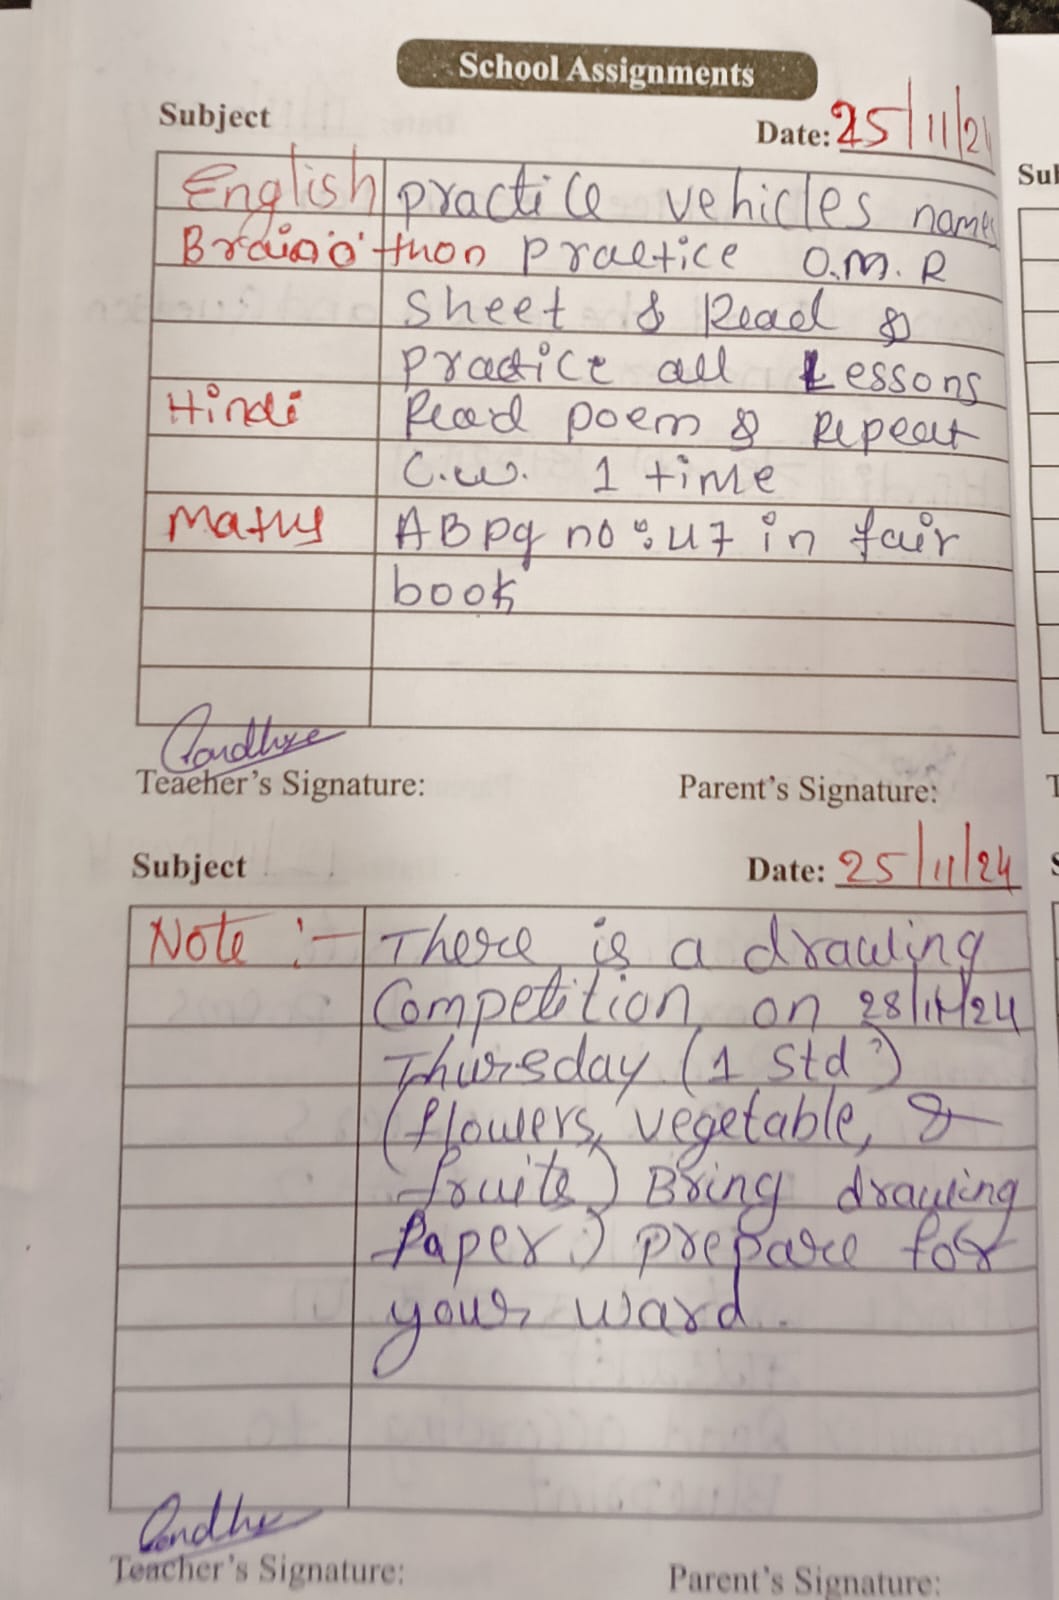 School Assignments
Subject Date: 25/11/24
English practice vehicles names
Brain'o'thon practice O.M.R
Sheet & Read &
practice all Lessons
Hindi Read poem & Repeat
C.W. 1 time
Maths AB pg no: 47 in fair
book
Teacher's Signature: Parent's Signature:
Subject Date: 25/11/24
Note :- There is a drawing
Competition on 28/11/24
Thursday (1 std)
(flowers, vegetable, &
fruits) Bring drawing
Paper) prepare for
your ward.
Teacher's Signature: Parent's Signature: